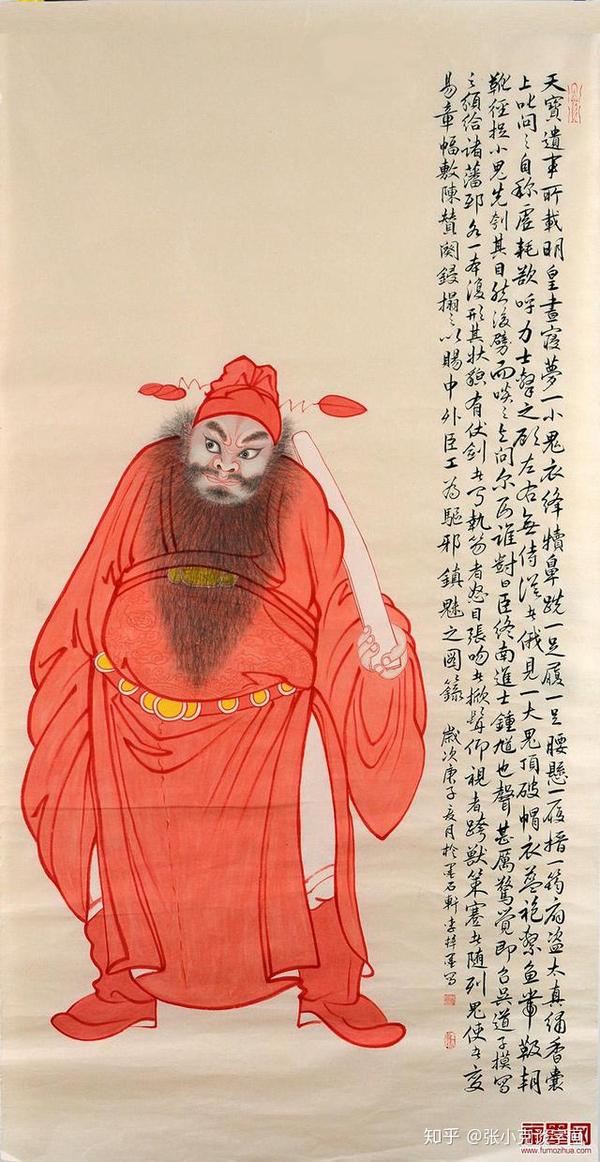 天寶遺事所載明皇晝寢夢一小鬼衣絳犢鼻跣一足履一足腰懸一履搢一筠扇盜太真繡香囊
上叱問之自称虛耗欲呼力士擊之顾左右無侍從者俄見一大鬼頂破帽衣蓝袍繫鱼帶靸朝
靴徑捉小鬼先刳其目然後劈而啖之上問尔为誰對曰臣終南進士鍾馗也聲甚厲驚覺即召吳道子摸写
之頒給諸藩邸各一本復形其狀貌有伏剑者執笏者怒目張吻者掀髯仰視者跨獸策蹇者随列鬼使者变
易章幅敷陳贊鋟搨之以賜中外臣工為驅邪鎮魅之圖籙 歲次庚子亥月於墨石軒李梓墨写
知乎 @张小
www.fumozihua.com